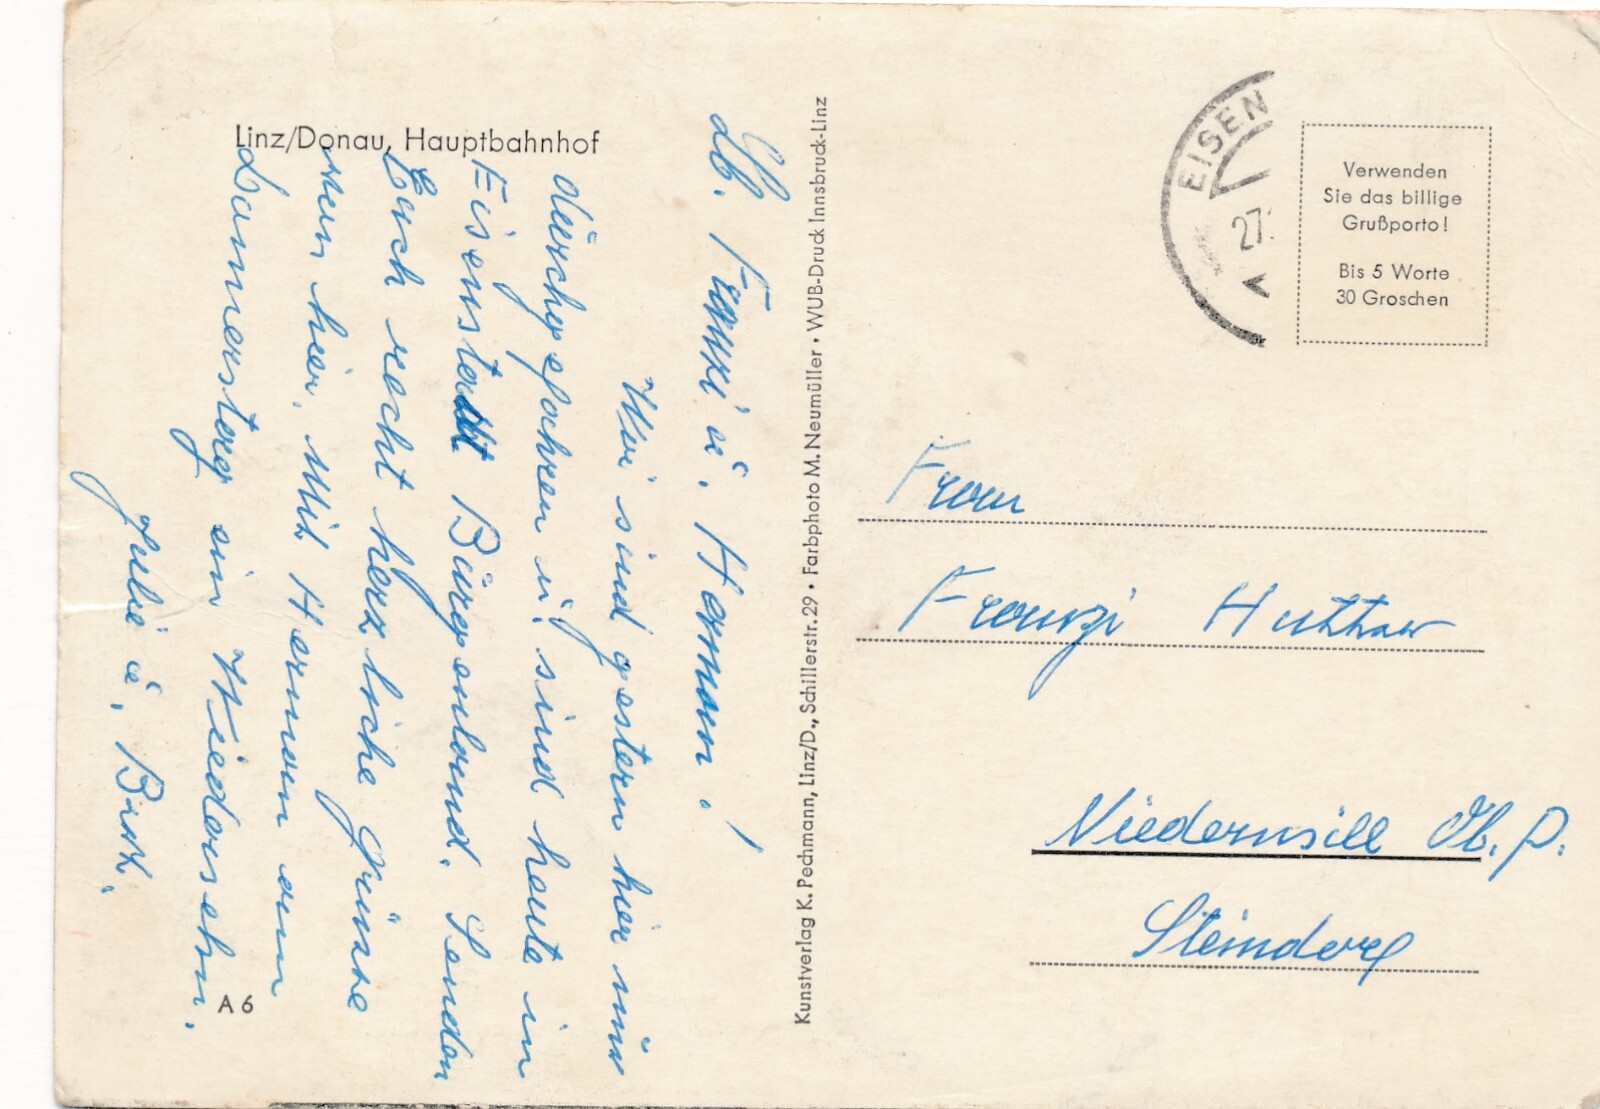 Linz/Donau, Hauptbahnhof
Lb. Franzi u. Hermann!
Wir sind gestern hier nur
durchgefahren u. sind heute in
Eisenstadt Burgenland. Senden
Euch recht herzliche Grüsse
von hier. Mit Hermann am
Donnerstag ein Wiedersehn.
Julie u. Bert.
A 6
Kunstverlag K. Pechmann, Linz/D., Schillerstr. 29 • Farbphoto M. Neumüller • WUB-Druck Innsbruck-Linz
EISEN
27.
Verwenden
Sie das billige
Grußporto!
Bis 5 Worte
30 Groschen
Frau
Franzi Huttar
Niedernsill Ob. P.
Steindorf